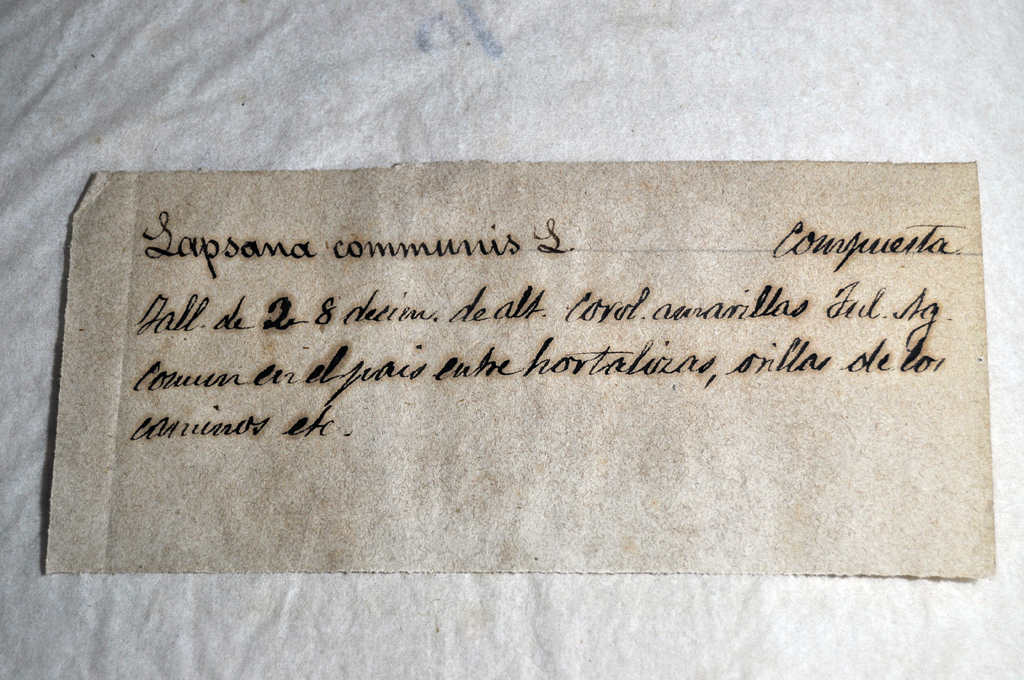 Lapsana communis L. Compuesta
Tall. de 2-8 decim. de alt. Corol. amarillas Jul. Ag.
Comun en el pais entre hortalizas, orillas de los
caminos etc.